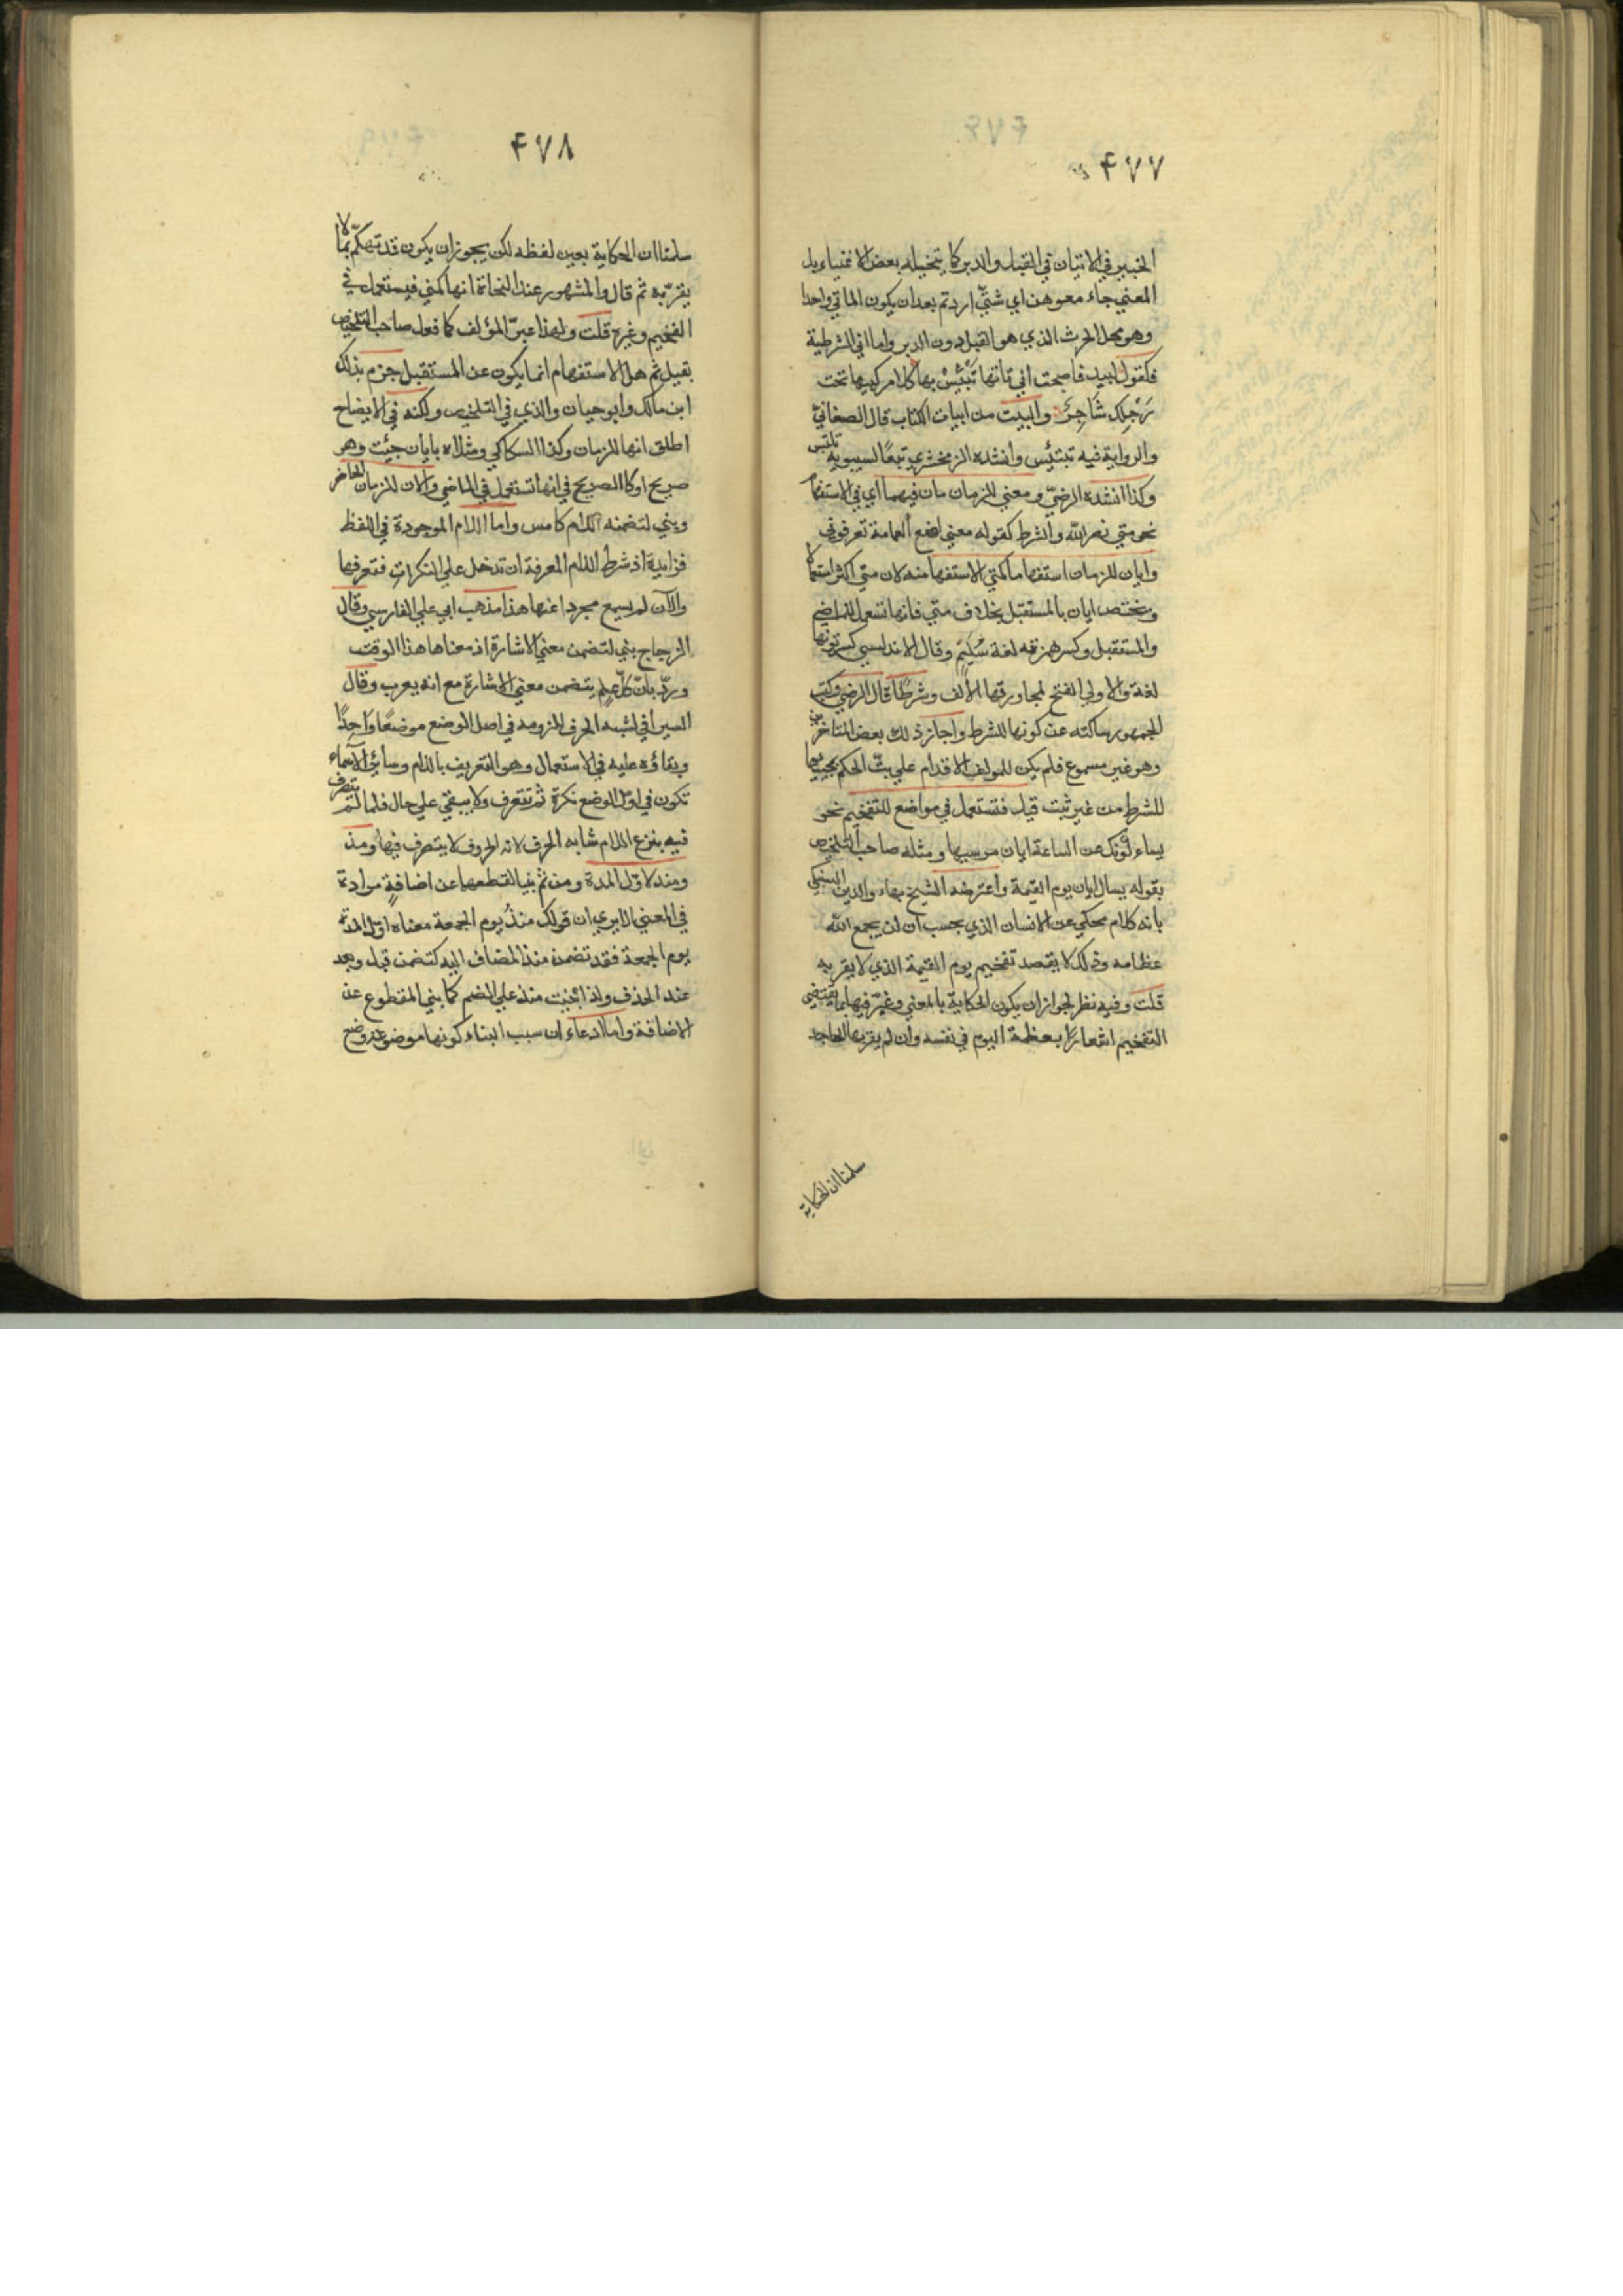 ٤٧٧
الخبير في الاتيان في القبل والدبر كما يتخيله بعض الاغنياء بل
المعني جاءمعوهن اي شئ اردتم بعد ان يكون الماتي واحدا
وهو محل الحرث الذي هو القبل دون الدبر واما اني الشرطية
فكقول لبيد فاصبحت اني تاتها تبتئس بها كلا مركبيها تحت
رجلك شاجر والبيت من ابيات الكتاب قال الصغاني
والرواية فيه تبتئس وانشده الزمخشري تبعا لسيبويه تلتبس
وكذا انشده الرضي ومعني للزمان مان فيهما اي في الاستفهام
نحو متي نصر الله والشرط كقوله معني اضع العمامة تعرفوني
وايان للزمان استفهاما كمتي الاستفهامنه لان متي اكثر استعمالا
ويختص ايان بالمستقبل بخلاف متي فانها تستعمل للماضي
والمستقبل وكسر همزته لغة سليم وقال الاندلسي كسر نونها
لغة والاولي الفتح لمجاورتها الالف وشرطا قال الرضي وكتب
الجمهور ساكته عن كونها للشرط واجاز ذلك بعض المتاخرين
وهو غير مسموع فلم يكن للمولف الاقدام علي بت الحكم بمجيئها
للشرط من غير ثبت قيل فتستعمل في مواضع للتفخيم نحو
يساءلونك عن الساعة ايان مرسيها ومثله صاحب التلخيص
بقوله يسال ايان يوم القيمة واعترضه الشيخ بهاء والدين السبكي
بانه كلام محكي عن الانسان الذي يحسب ان لن يجمع الله
عظامه وذلك لا يقصد تفخيم يوم القيمة الذي لا يقر به
قلت وفيه نظر لجواز ان يكون الحكاية بالمعني وغير فيها بما يقتضي
التفخيم اشعارا بعظمة اليوم في نفسه وان لم يقر بها الجاحد
سلمنا ان الحكاية
٤٧٨
سلمنا ان الحكاية بعين لفظه لكن يجوز ان يكون قد تهكم بما لا
يقر به ثم قال والمشهور عند النحاة انها كمتي فيستعمل في
التفخيم وغيره قلت ولهذا عبر المؤلف كما فعل صاحب التلخيص
بقيل ثم هل الاستفهام انما يكون عن المستقبل جزم بذلك
ابن مالك وابو حيان والذي في التلخيص ولكنه في الايضاح
اطلق انها للزمان وكذا السكاكي ومثلاه بايان جئت وهو
صريح او كالصريح في انها تستعمل في الماضي والان للزمان الحاضر
وبني لتضمنه اللام كامس واما اللام الموجودة في اللفظ
فزايدة اذ شرط اللام المعرفة ان تدخل علي النكرات فتعرفها
والآن لم يسمع مجردا عنها هذا مذهب ابي علي الفارسي وقال
الزجاج بني لتضمن معني الاشارة اذ معناها هذا الوقت
ورد بان كل علم يتضمن معني الاشارة مع انه يعرب وقال
السيرافي لشبه الحرف للزومه في اصل الوضع موضعا واحدا
وبقاؤه عليه في الاستعمال وهو التعريف باللام وسائر الاسماء
تكون في اول الوضع نكرة ثم تتعرف ولا يبقي علي حال فلما لم يتصرف
فيه بنزع اللام شابه الحرف لانه الحروف لا يتصرف فيها ومذ
ومنذ لاول المدة ومن ثم بنيا لقطعهما عن اضافة مرادة
في المعني الا يري ان قولك منذ يوم الجمعة معناه اول المدة
يوم الجمعة فقد تضمن منذ المضاف اليه كتضمن قبل وبعد
عند الحذف ولذا بنيت منذ علي الضم كما بني المقطوع عن
الاضافة واما ادعاء ان سبب البناء كونها موضوعة وضع